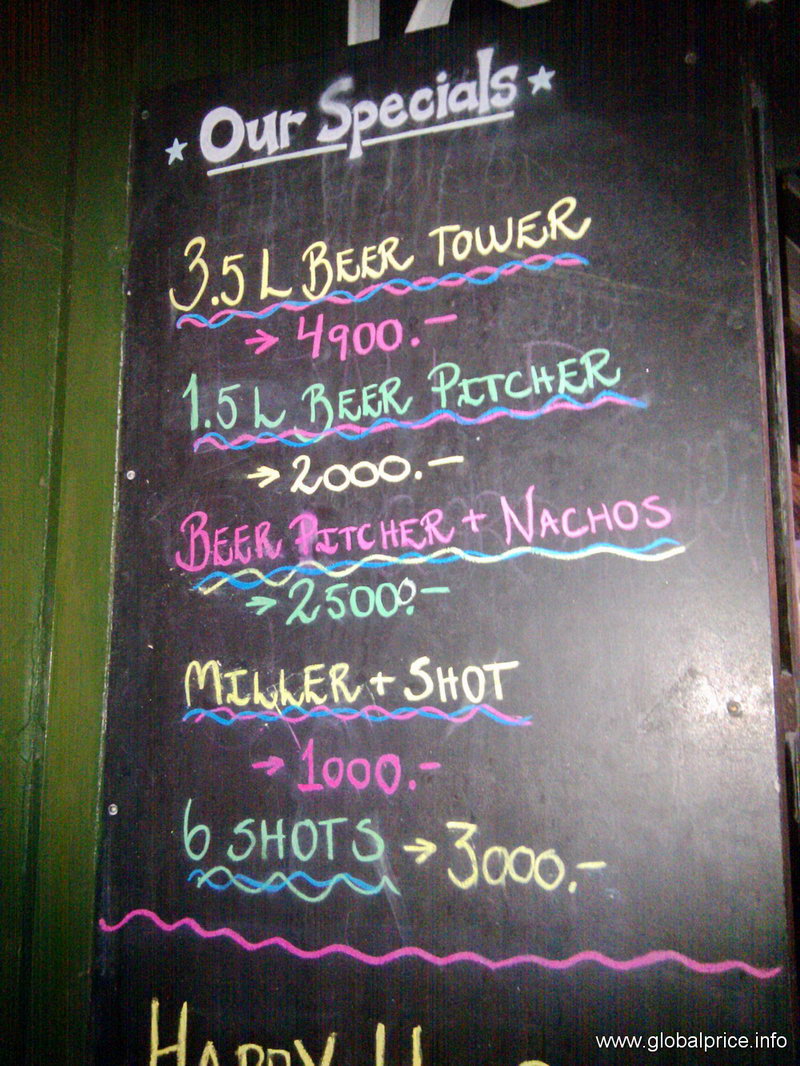 Our Specials
3.5 L BEER TOWER
→ 4900.-
1.5 L BEER PITCHER
→ 2000.-
BEER PITCHER + NACHOS
→ 2500.-
MILLER + SHOT
→ 1000.-
6 SHOTS → 3000.-
HAPPY
www.globalprice.info